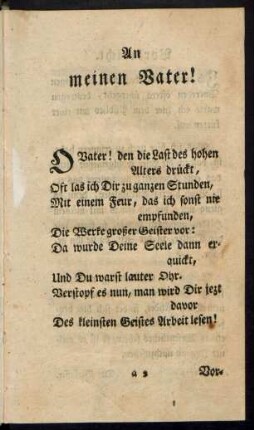 An
meinen Vater!
O Vater! den die Last des hohen
Alters drückt,
Oft las ich Dir zu ganzen Stunden,
Mit einem Feur, das ich sonst nie
empfunden,
Die Werke großer Geister vor:
Da wurde Deine Seele dann er-
quickt,
Und Du warst lauter Ohr.
Verstopf es nun, man wird Dir jezt
davor
Des kleinsten Geistes Arbeit lesen!
a 2 Vor-